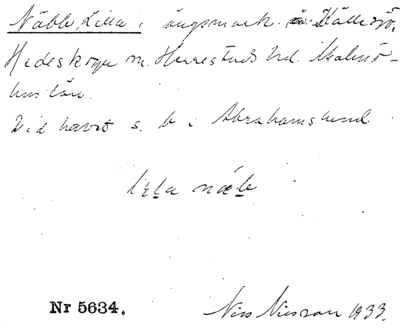 Näble, Lilla i ängsmark Källesjö,
Hedeskoga sn. Herrestads hd. i Malmö-
hus län.
Vid havet s. b i Abrahamslund
lɪla näbɩe
Nr 5634. Nils Nilsson 1933.